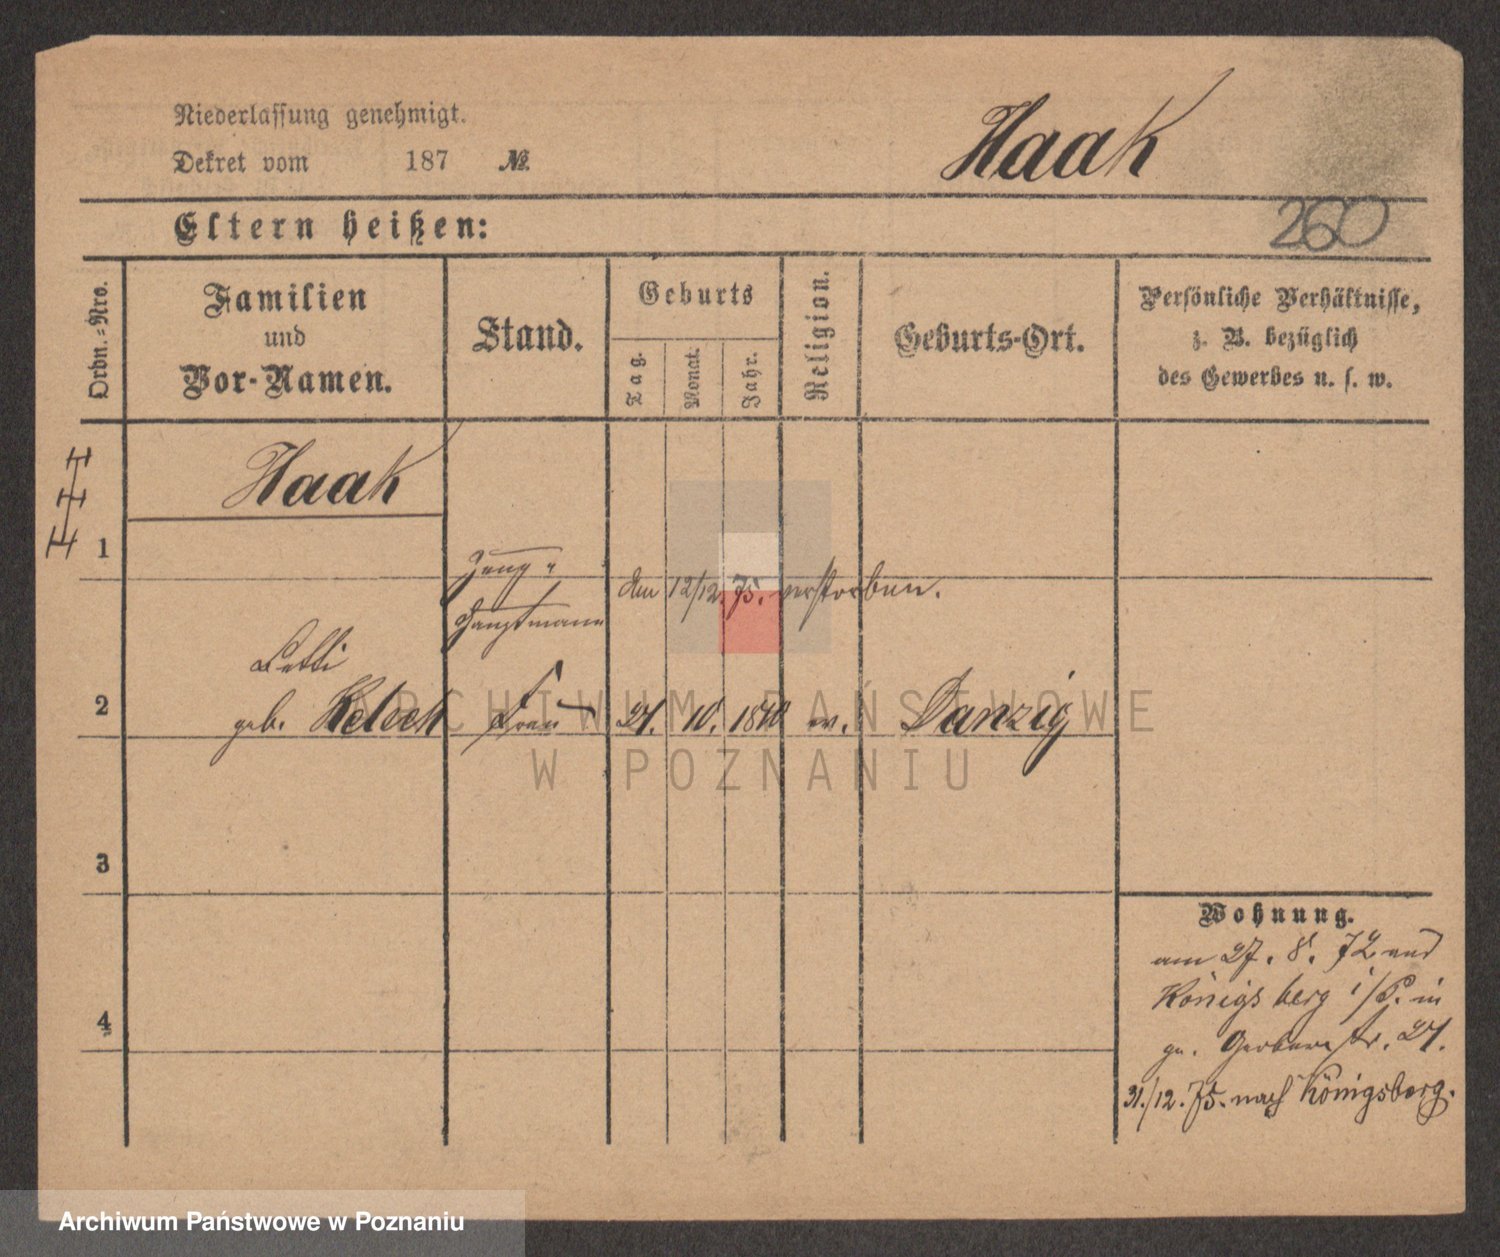 Niederlassung genehmigt.
Dekret vom 187 №
Haak
260
Eltern heißen:
Ordn.-Nro.
Familien
und
Vor-Namen.
Stand.
Geburts
Tag.
Monat.
Jahr.
Religion.
Geburts-Ort.
Persönliche Verhältnisse,
z. B. bezüglich
des Gewerbes u. s. w.
Haak
1
Zeug-
Hauptmann
den 12/12. 75. verstorben.
2
geb.
Frau
10.
Danzig
3
4
Wohnung.
am 27. 8. 72 aus
Königsberg i/P. in
Gerberstr. 21.
31./12. 75. nach Königsberg.
ARCHIWUM PAŃSTWOWE
W POZNANIU
Archiwum Państwowe w Poznaniu